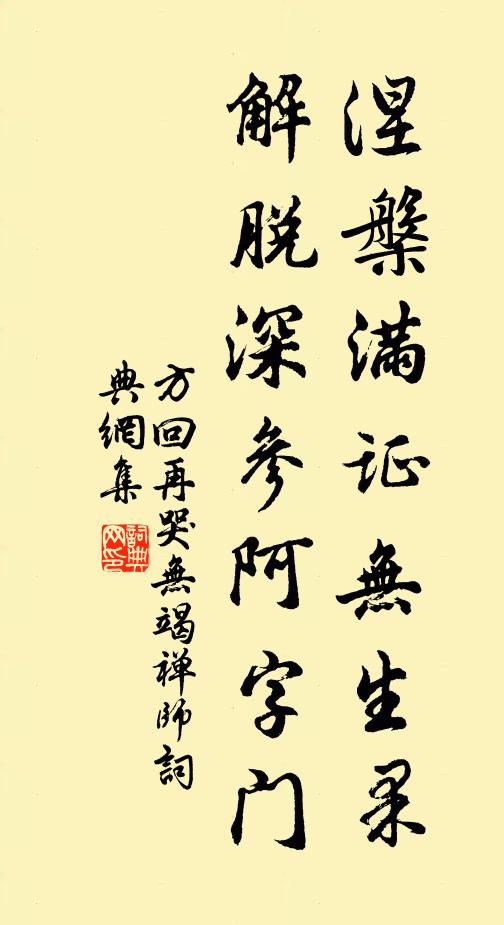 涅槃满证無生果
解脱深參阿字门
方回再哭無竭禅師詞
典網集
詞典網印